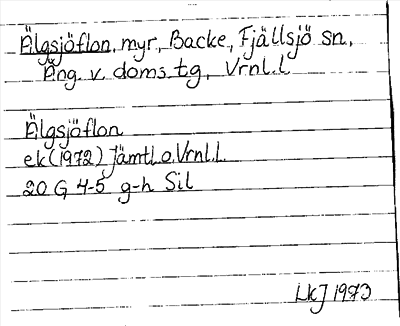 Älgsjöflon, myr, Backe, Fjällsjö sn,
Ång. v. doms. tg, Vrnl. l
Älgsjöflon
ek (1972) Jämtl. o. Vrnl. L
20 G 4-5 g-h Sil
LkJ 1973